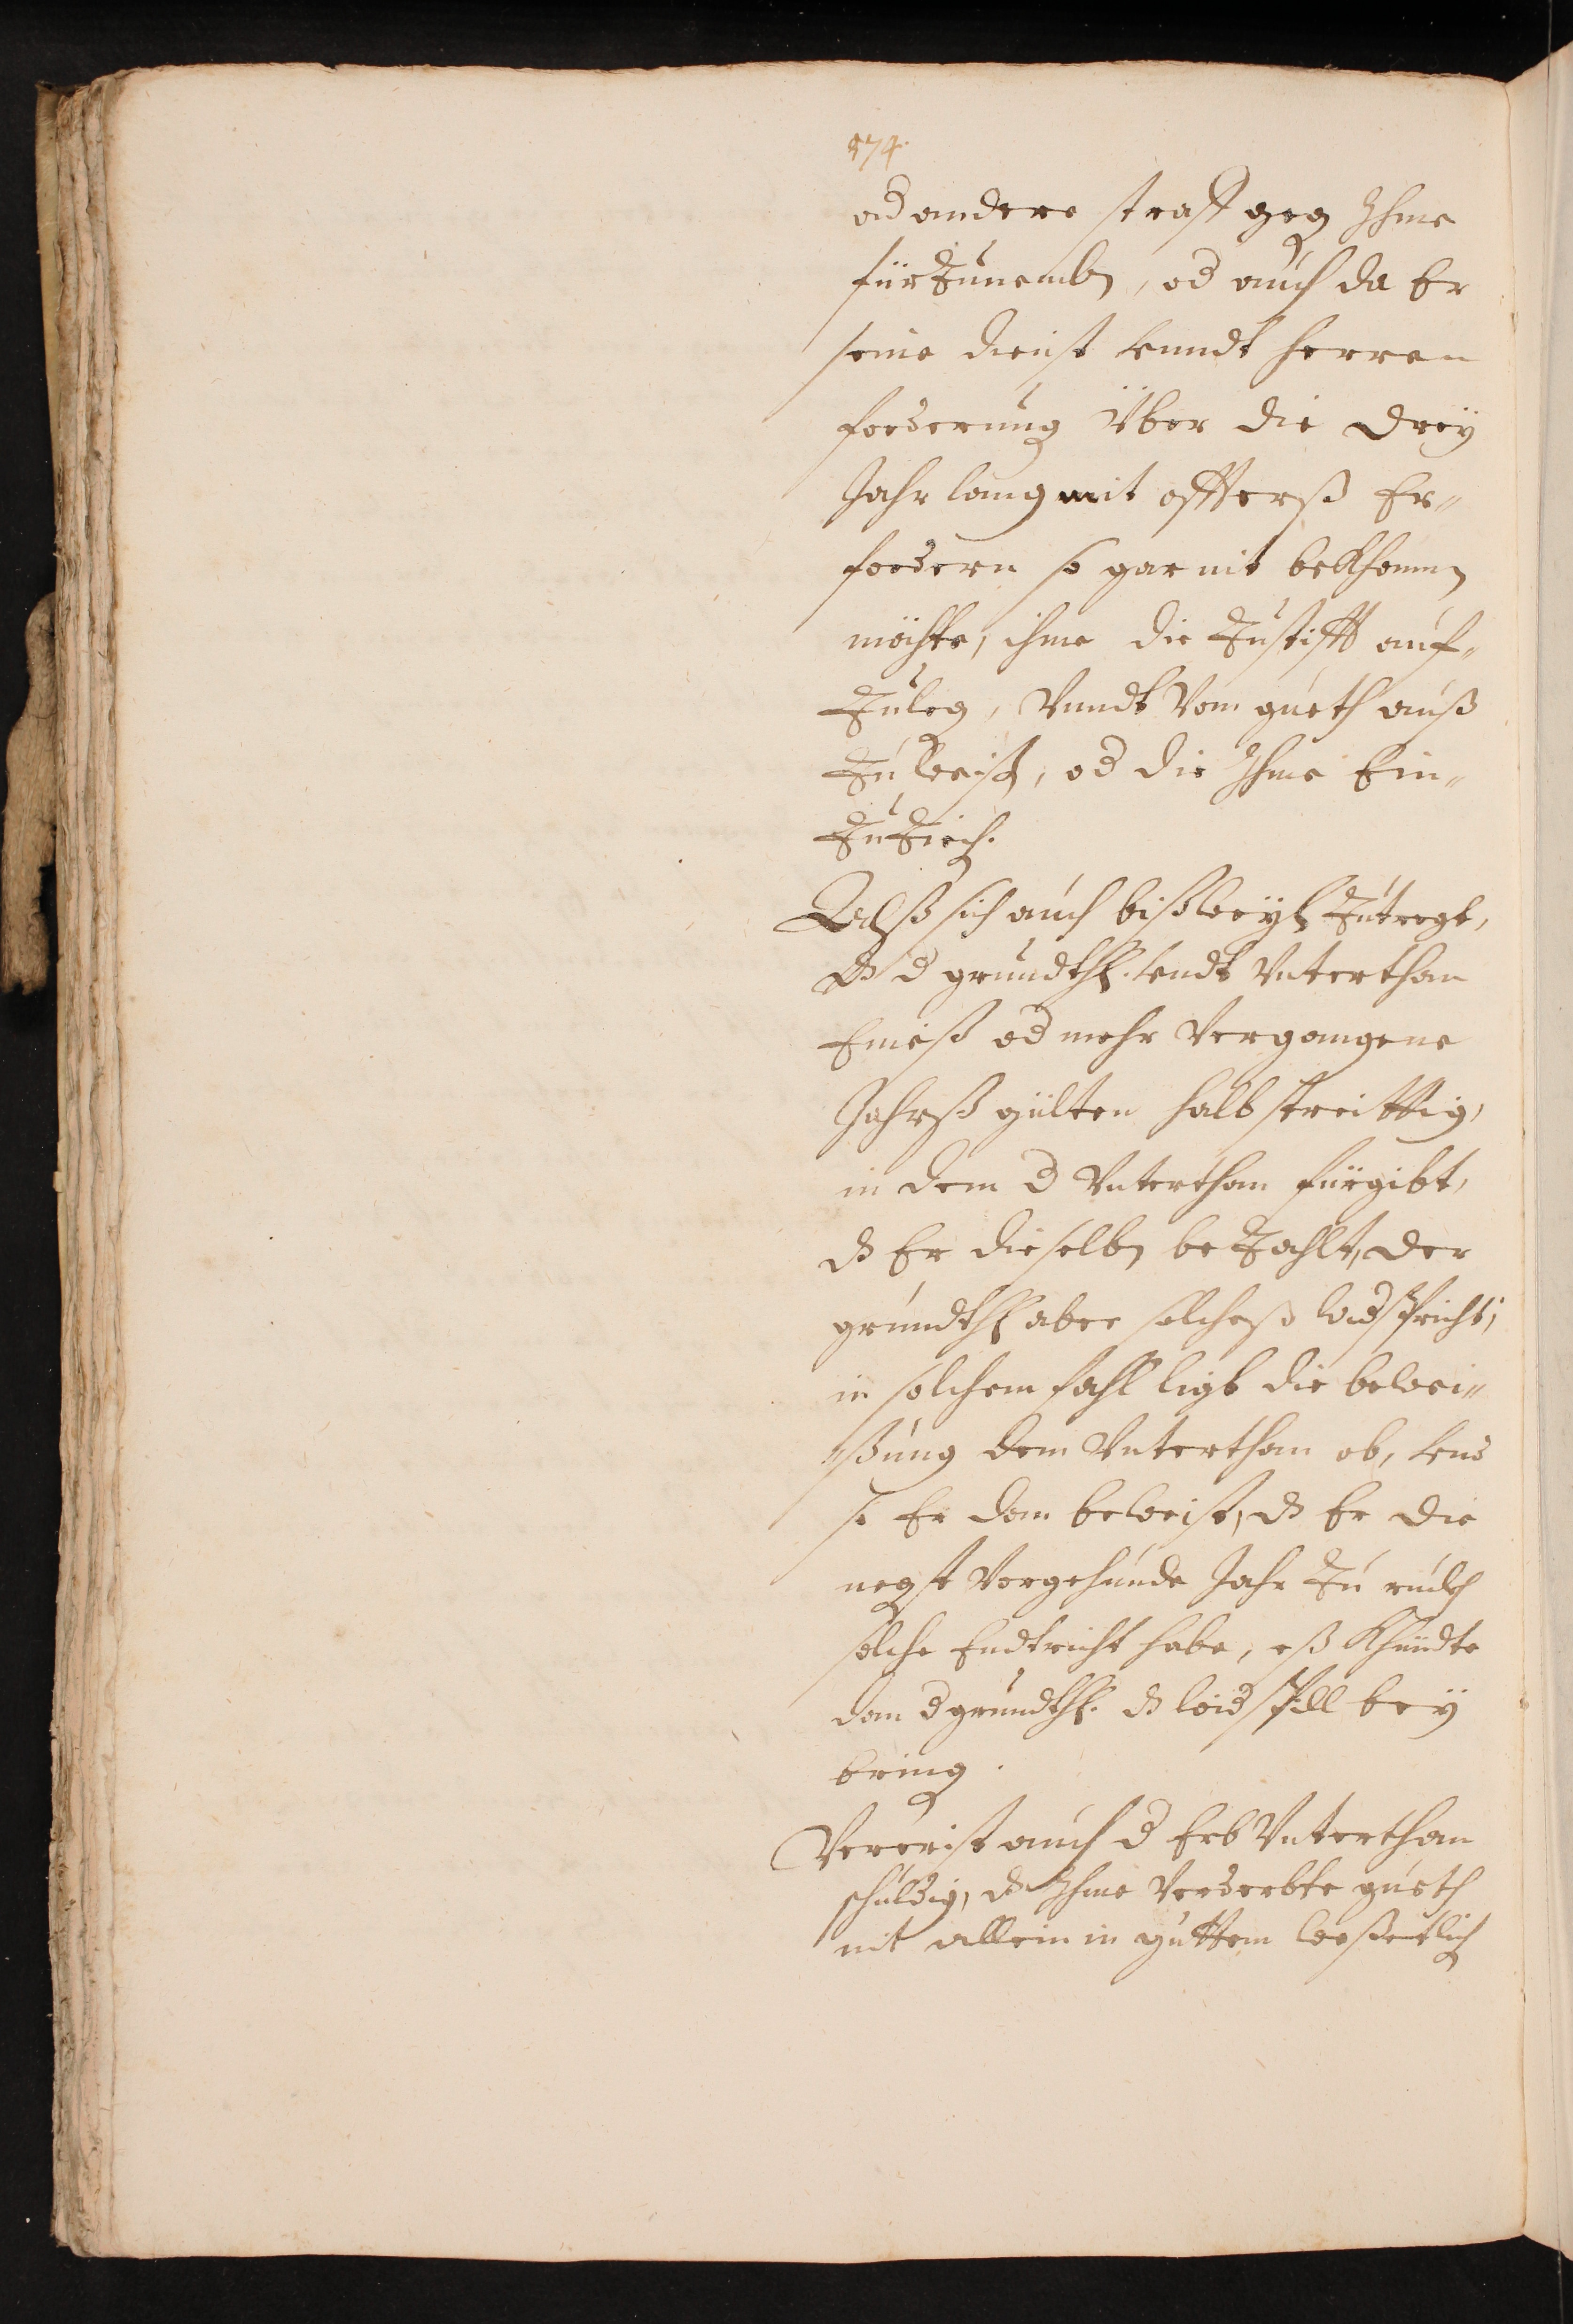 574.
od andere straff geg Ihme
fürzunembn, od auch da Er
seine dienst vnndt herren
forderung Über die dreÿ
Jahr lang mit offterß Er„
fordern so gar nit bekhomen
möchte, ihme die Zustifft auf„
Zuleg, Vnndt Vom gueth auß
Zu weisen, od die Ihme Ein„
Zuziech.
Alß sich auch bißweÿl Zutregt,
dß d grundthl. vndt Vnterthan
Eineß od mehr Vergangene
Jahrß gülten halb streittig,
in dem d Vnterthan fürgibt,
dß Er dieselbn bezahlt, der
grundthl aber solcheß widspricht,
in solchem fahl ligt die bewei„
„ßung dem Vnterthan ob, vnd
so Er dan beweist, dß Er die
negste Vorgehunde Jahr Zu rückh
solche Endtricht habe, eß khündte
dan d grundthl. dß widspill beÿ
bring.
Verer ist auch d Erb Vnterthan
schuldig, dß Ihme Vererbte gueth
nit allein in guttem weßentlich